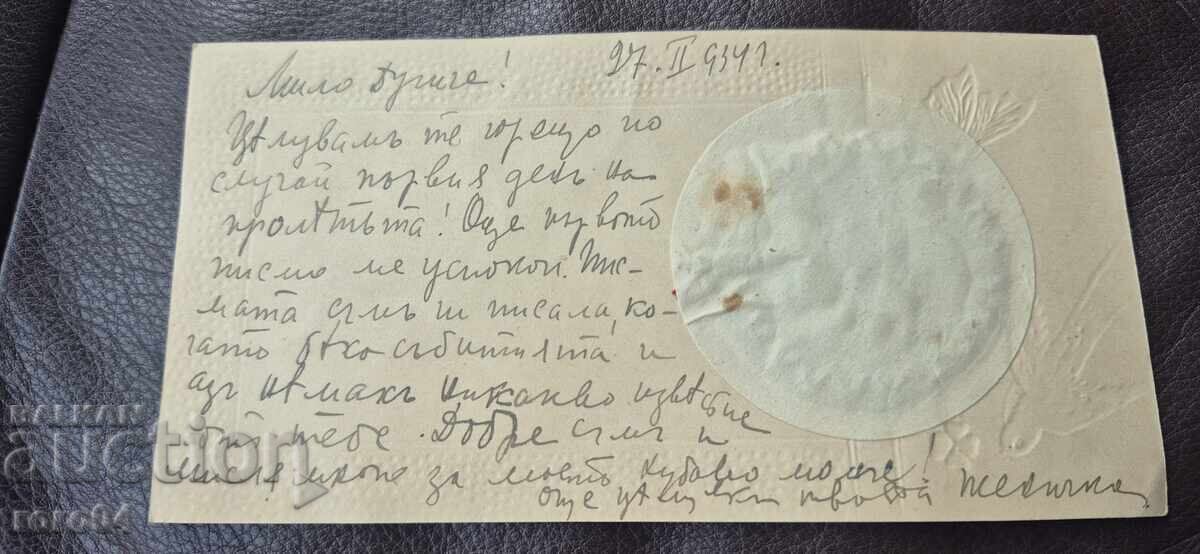 27. II 934 г.
Мило Дупиче!
Цѣлувамъ те горещо по
случай първия день на
пролѣтьта! Още първото
писмо ме успокои. Пис-
мата съмъ ти писала, ко-
гато бѣха събитията и
азъ нѣмахъ никакво известие
отъ тебе. Добре съмъ и
мисля много за моето хубаво момче!
Още целувки твоята Женичка
BALKAN
auction
гого64